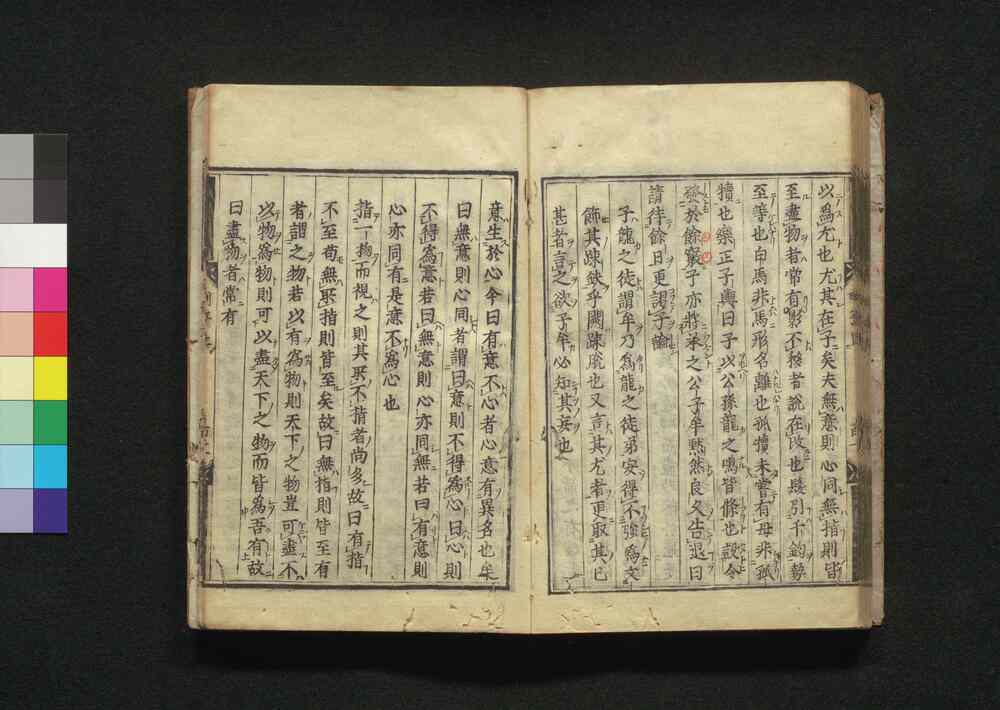 以爲尤也尤其在子矣夫無意則心同無指則皆
至盡物者常有影不移者說在改也髮引千鈞勢
至等也白馬非馬形名離也孤犢未嘗有母非孤
犢也樂正子輿曰子以公孫龍之鳴皆條也設令
發於餘竅子亦將承之公子牟黙然良久告退曰
請待餘日更謁子論
子龍之徒謂牟乃爲龍之徒弟安得不强爲文
飾其踈欽乎闕踈也又言其尤者更取其已
甚者言之欲子牟必知其妄也
意生於心今曰有意不心者心意有異名也
曰無意則心同者謂曰意則不得爲心曰心則
不得爲意若曰無意則心亦同無若曰有意則
心亦同有是意不爲心也
指一物而視之則其所不指者尚多故曰有指
不至苟無所指則皆至矣故曰無指則皆至有
者謂之物若以有爲物則天下之物豈可盡不
以物爲物則可以盡天下之物而皆爲吾有故
曰盡物者常有